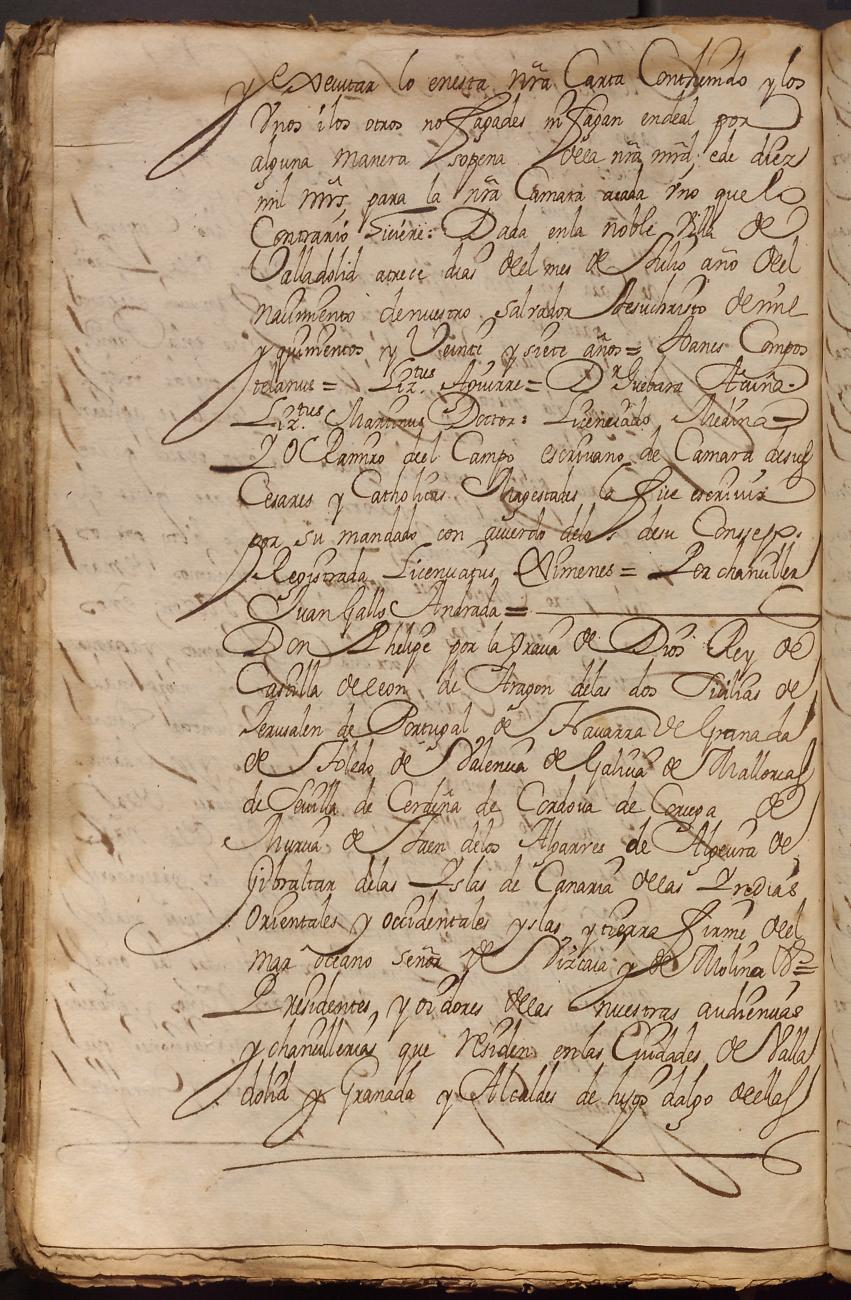 y executar lo enesta nrã Carta Contenido y los
Vnos i los otros no fagades ni fagan endeal por
alguna manera sopena dela nrã mrd, ede diez
mil mrs, para la nrã Camara acada Vno que lo
Contrario hiciere: Dada enla noble Villa de
Valladolid atrece dias del mes de Jullio año del
nacimiento denuestro Salvador Jesuchristo de mil
y quinientos y Veinte y siete años = Joanes Compos
telanus = Liz.tus Aguirre = D.r Guebara Acuña.
Liz.tus Martinus Doctor: Licenciado Medina
YO Ramiro del Campo escrivano de Camara desus
Cesares y Catholicas Magestades la fice escrivir
por su mandado con acuerdo delos desu Consejo.
Registrada Licenciatus Ximenes = Por chanciller
Juan Gallo Andrada =
Don Phelipe por la gracia de Dios Rey de
Castilla deleon, de Aragon delas dos Sicilias de
Jerusalen de Portugal de Navarra de Granada
de Toledo de Valencia de Galicia de Mallorcas
de Sevilla de Cerdeña de Cordova de Corcega de
Murcia de Jaen delos Algarves de Algecira de
Gibraltar delas Yslas de Canaria delas Yndias
Orientales y occidentales yslas y tierra firme del
mar oceano señor de Vizcaia y de Molina &c=
Presidentes, y oidores delas nuestras audiencias
y chancillerias que residen enlas Ciudades de Valla
dolid y Granada y Alcaldes de hijos dalgo dellas